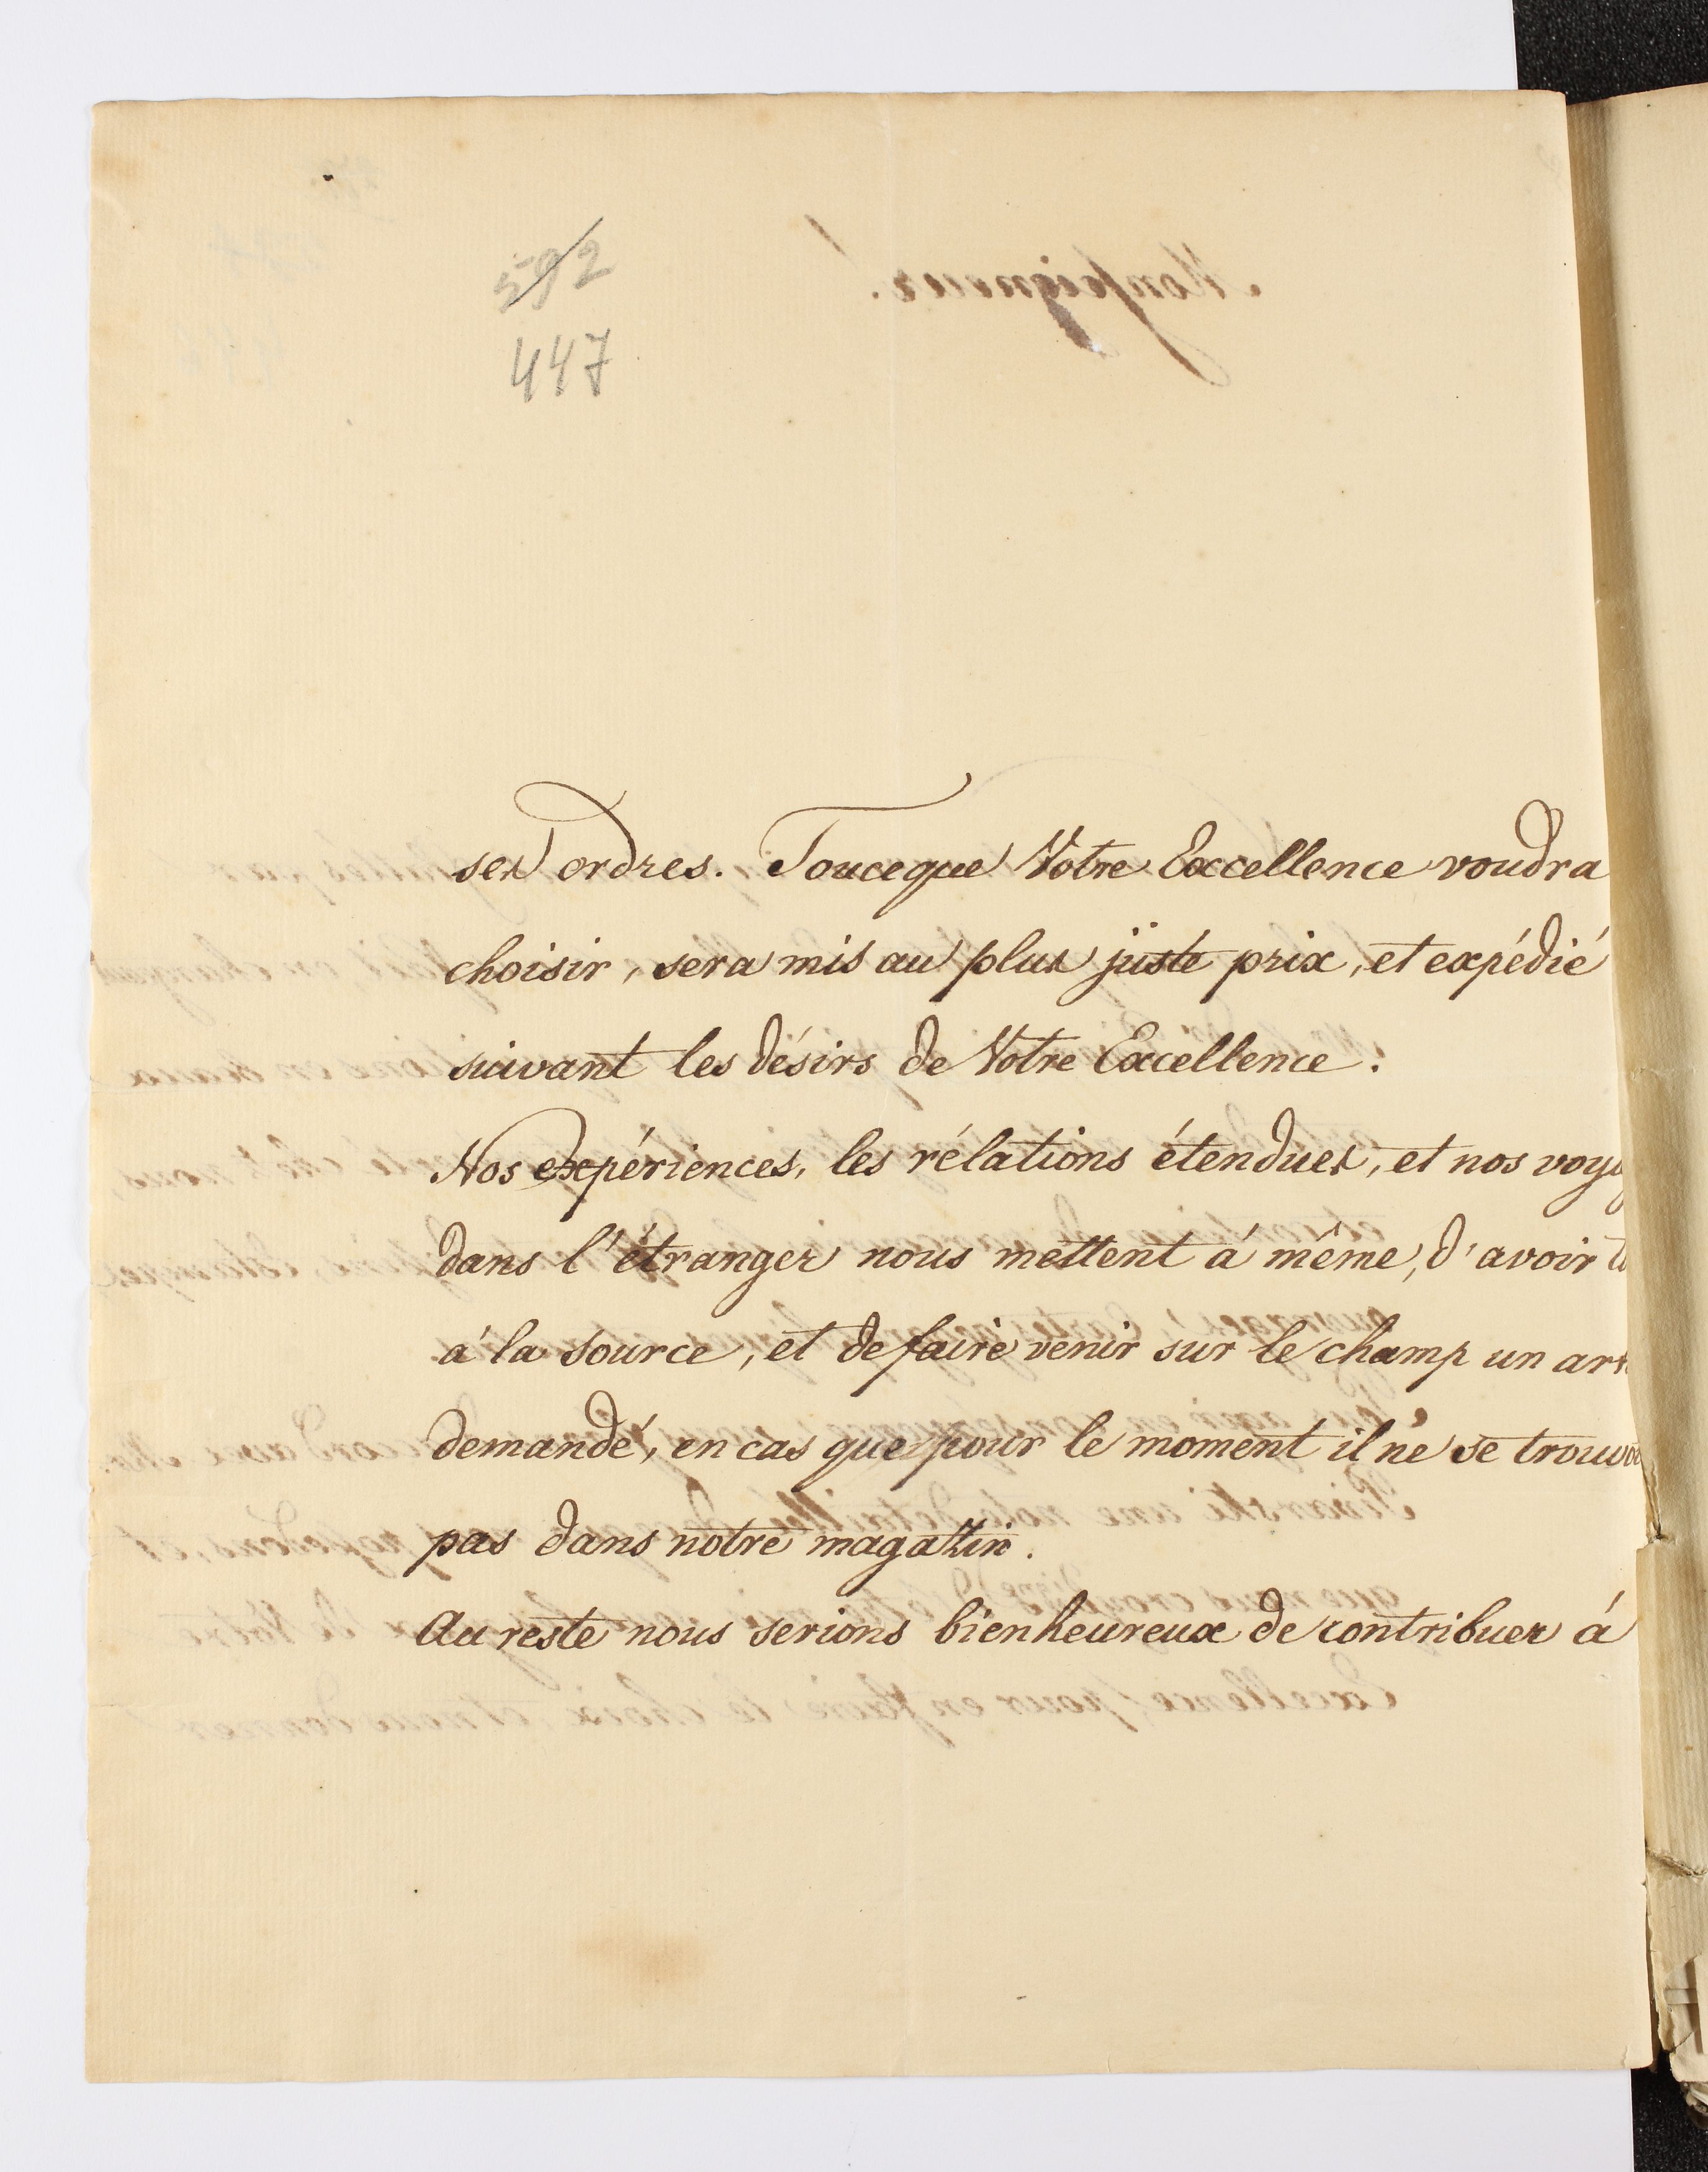 592
447
ses ordres. Touceque Votre Excellence voudra
choisir, sera mis au plus juste prix, et expédié
suivant les désirs de Votre Excellence.
Nos expériences, les rélations étendues, et nos
dans l'étranger nous mettent á même, d'avoir
á la source, et de faire venir sur le champ un
demandé, en cas que pour le moment il ne se
pas dans notre magazin.
Au reste nous serions bienheureux de contribuer á